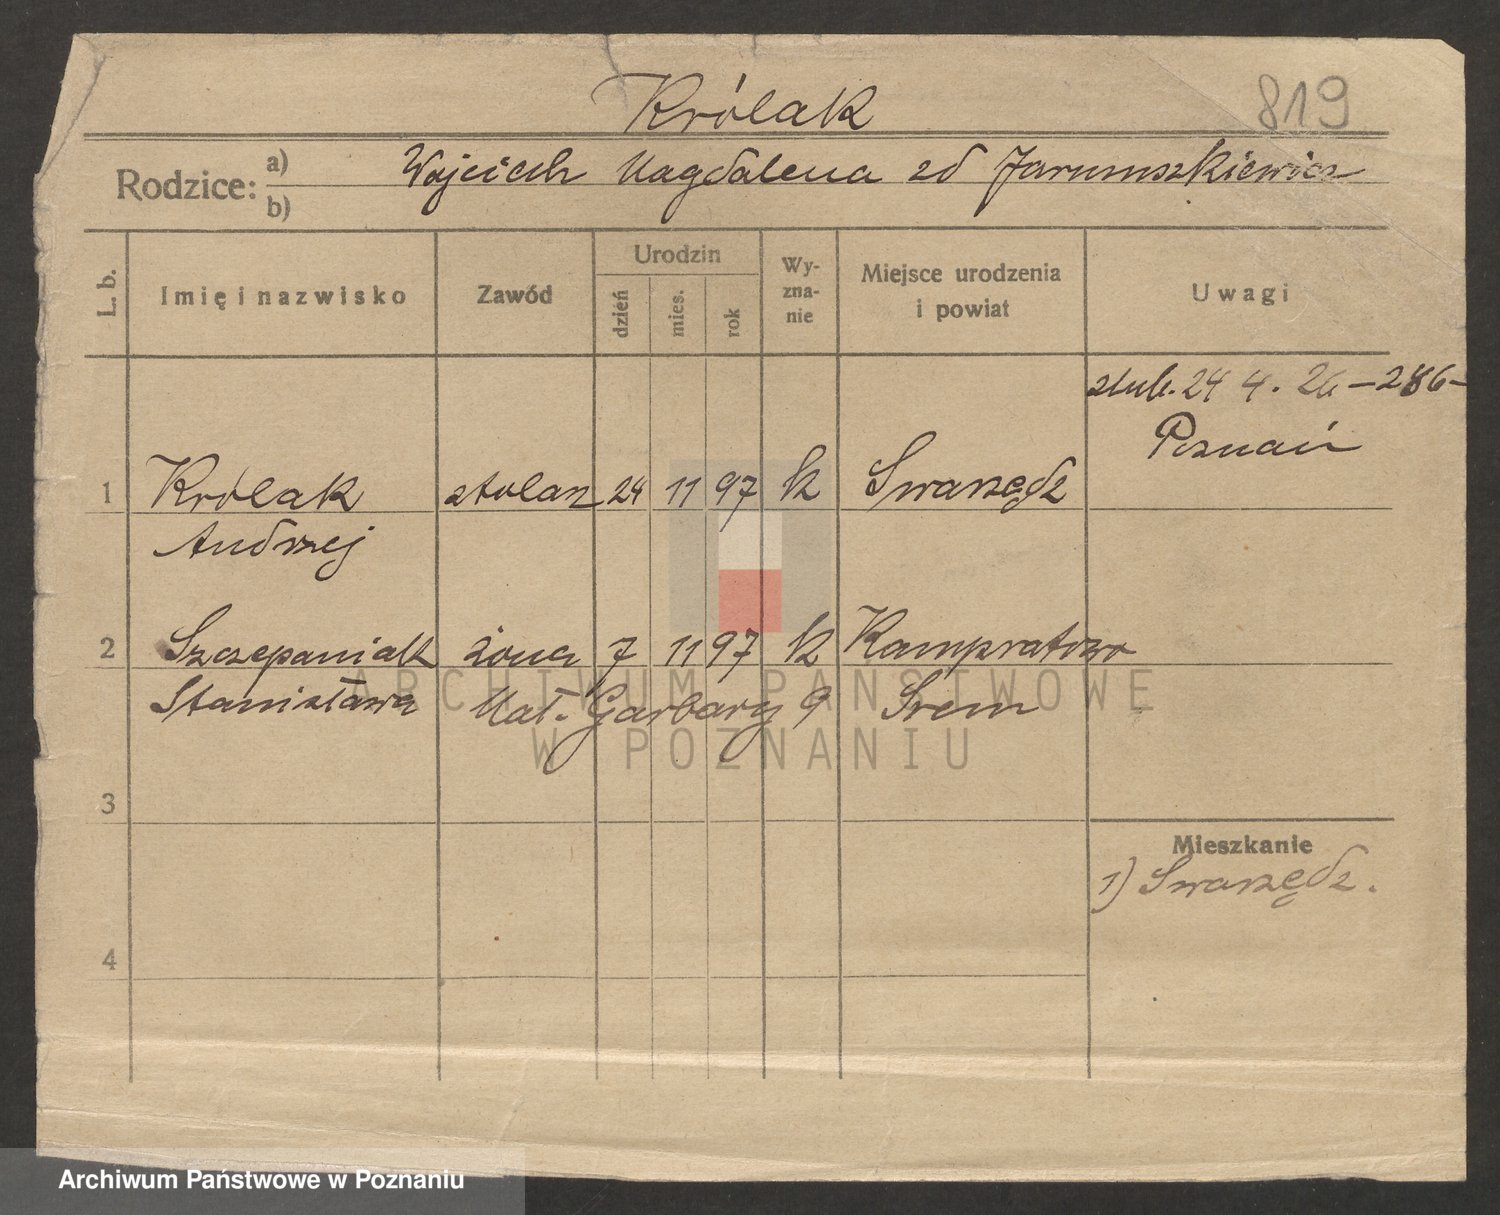 Królak
819
Rodzice: a) b) Wojciech Magdalena zd Jarumszkiewicz
L. b.
Imię i nazwisko
Zawód
Urodzin
dzień
mies.
rok
Wy-
zna-
nie
Miejsce urodzenia
i powiat
Uwagi
ślub. 24 4. 26 – 286 –
Poznań
1 Królak stolarz 24 11 97 k Swarzędz
Andrzej
2 Szczepaniak żona 7 11 97 k
Stanisława Mał. Garbary 9 Śrem
ARCHIWUM PAŃSTWOWE
W POZNANIU
3
Mieszkanie
1) Swarzędz.
4
Archiwum Państwowe w Poznaniu